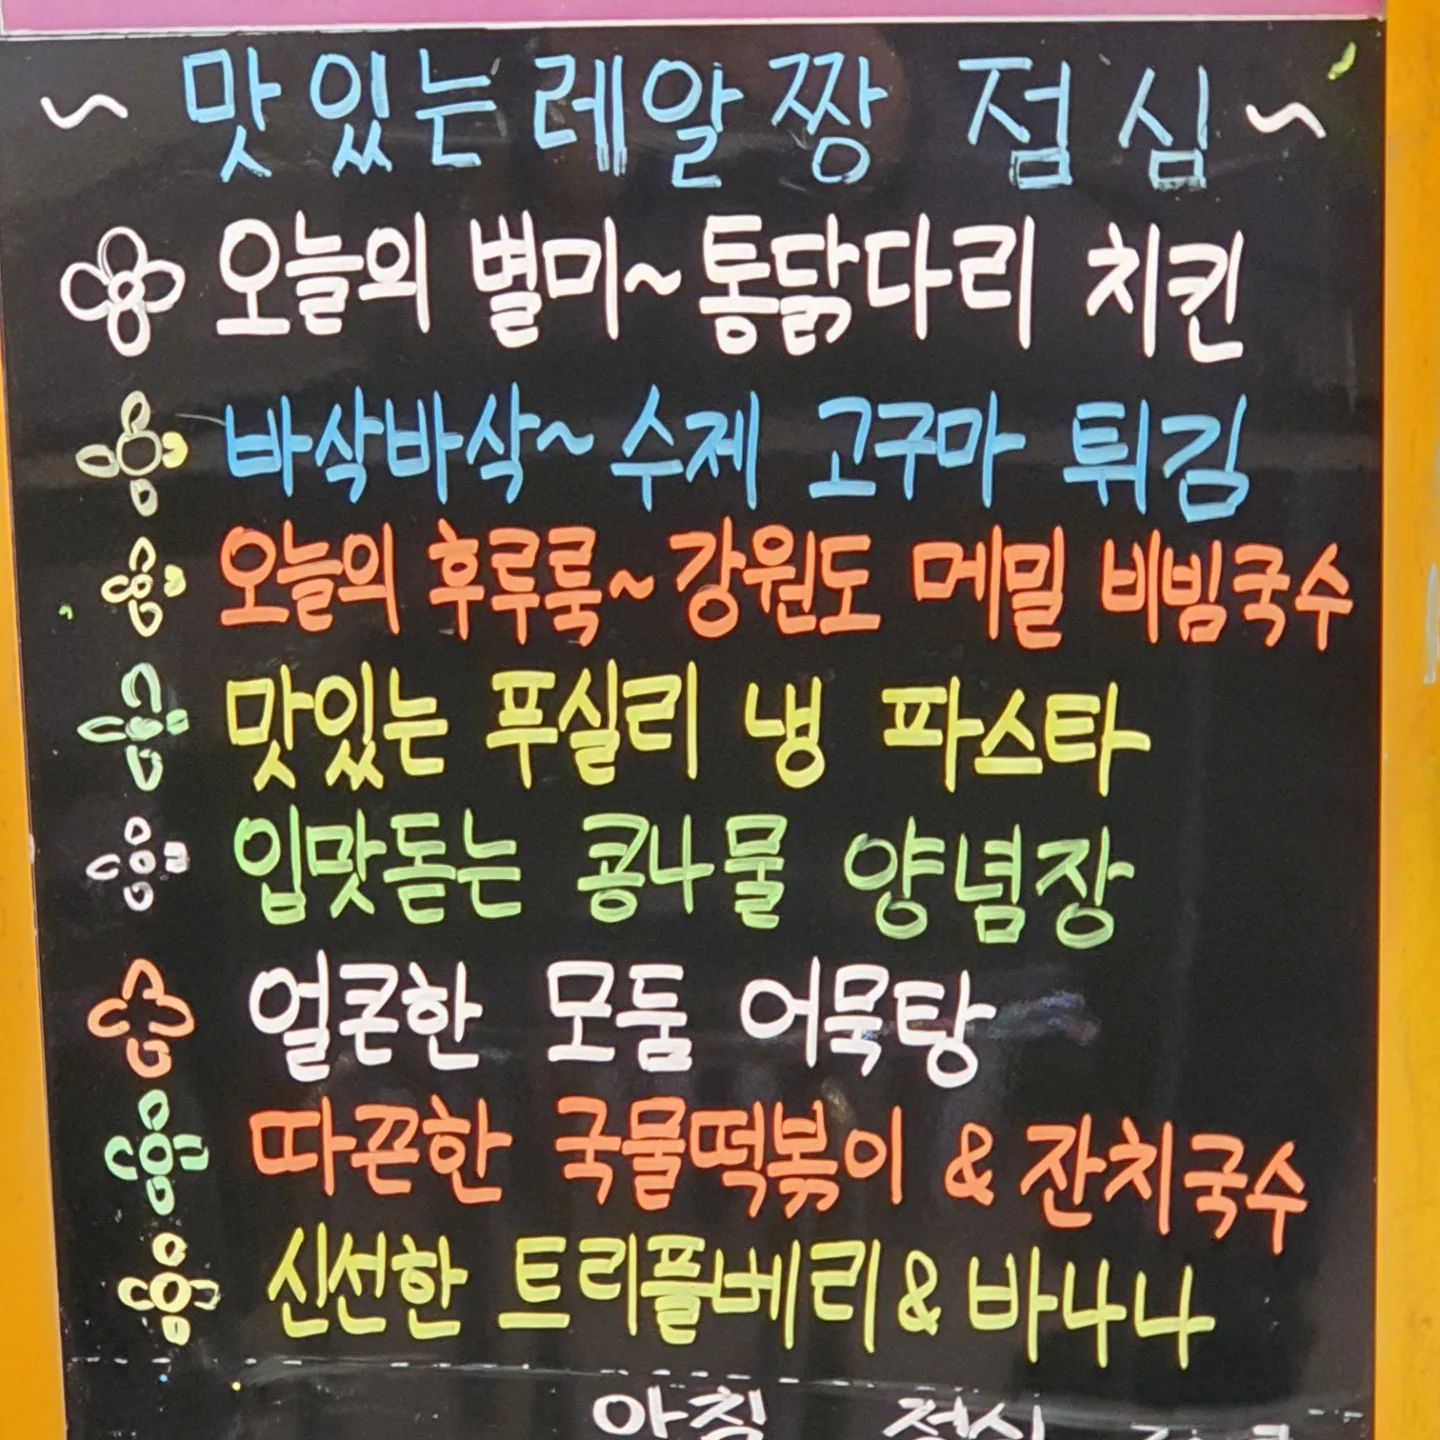 ~ 맛있는레알짱 점심 ~
오늘의 별미~통닭다리 치킨
바삭바삭~ 수제 고구마 튀김
오늘의 후루룩~강원도 메밀 비빔국수
맛있는 푸실리 냉 파스타
입맛돋는 콩나물 양념장
얼큰한 모둠 어묵탕
따끈한 국물떡볶이 & 잔치국수
신선한 트리플베리 & 바나나
아침 점심